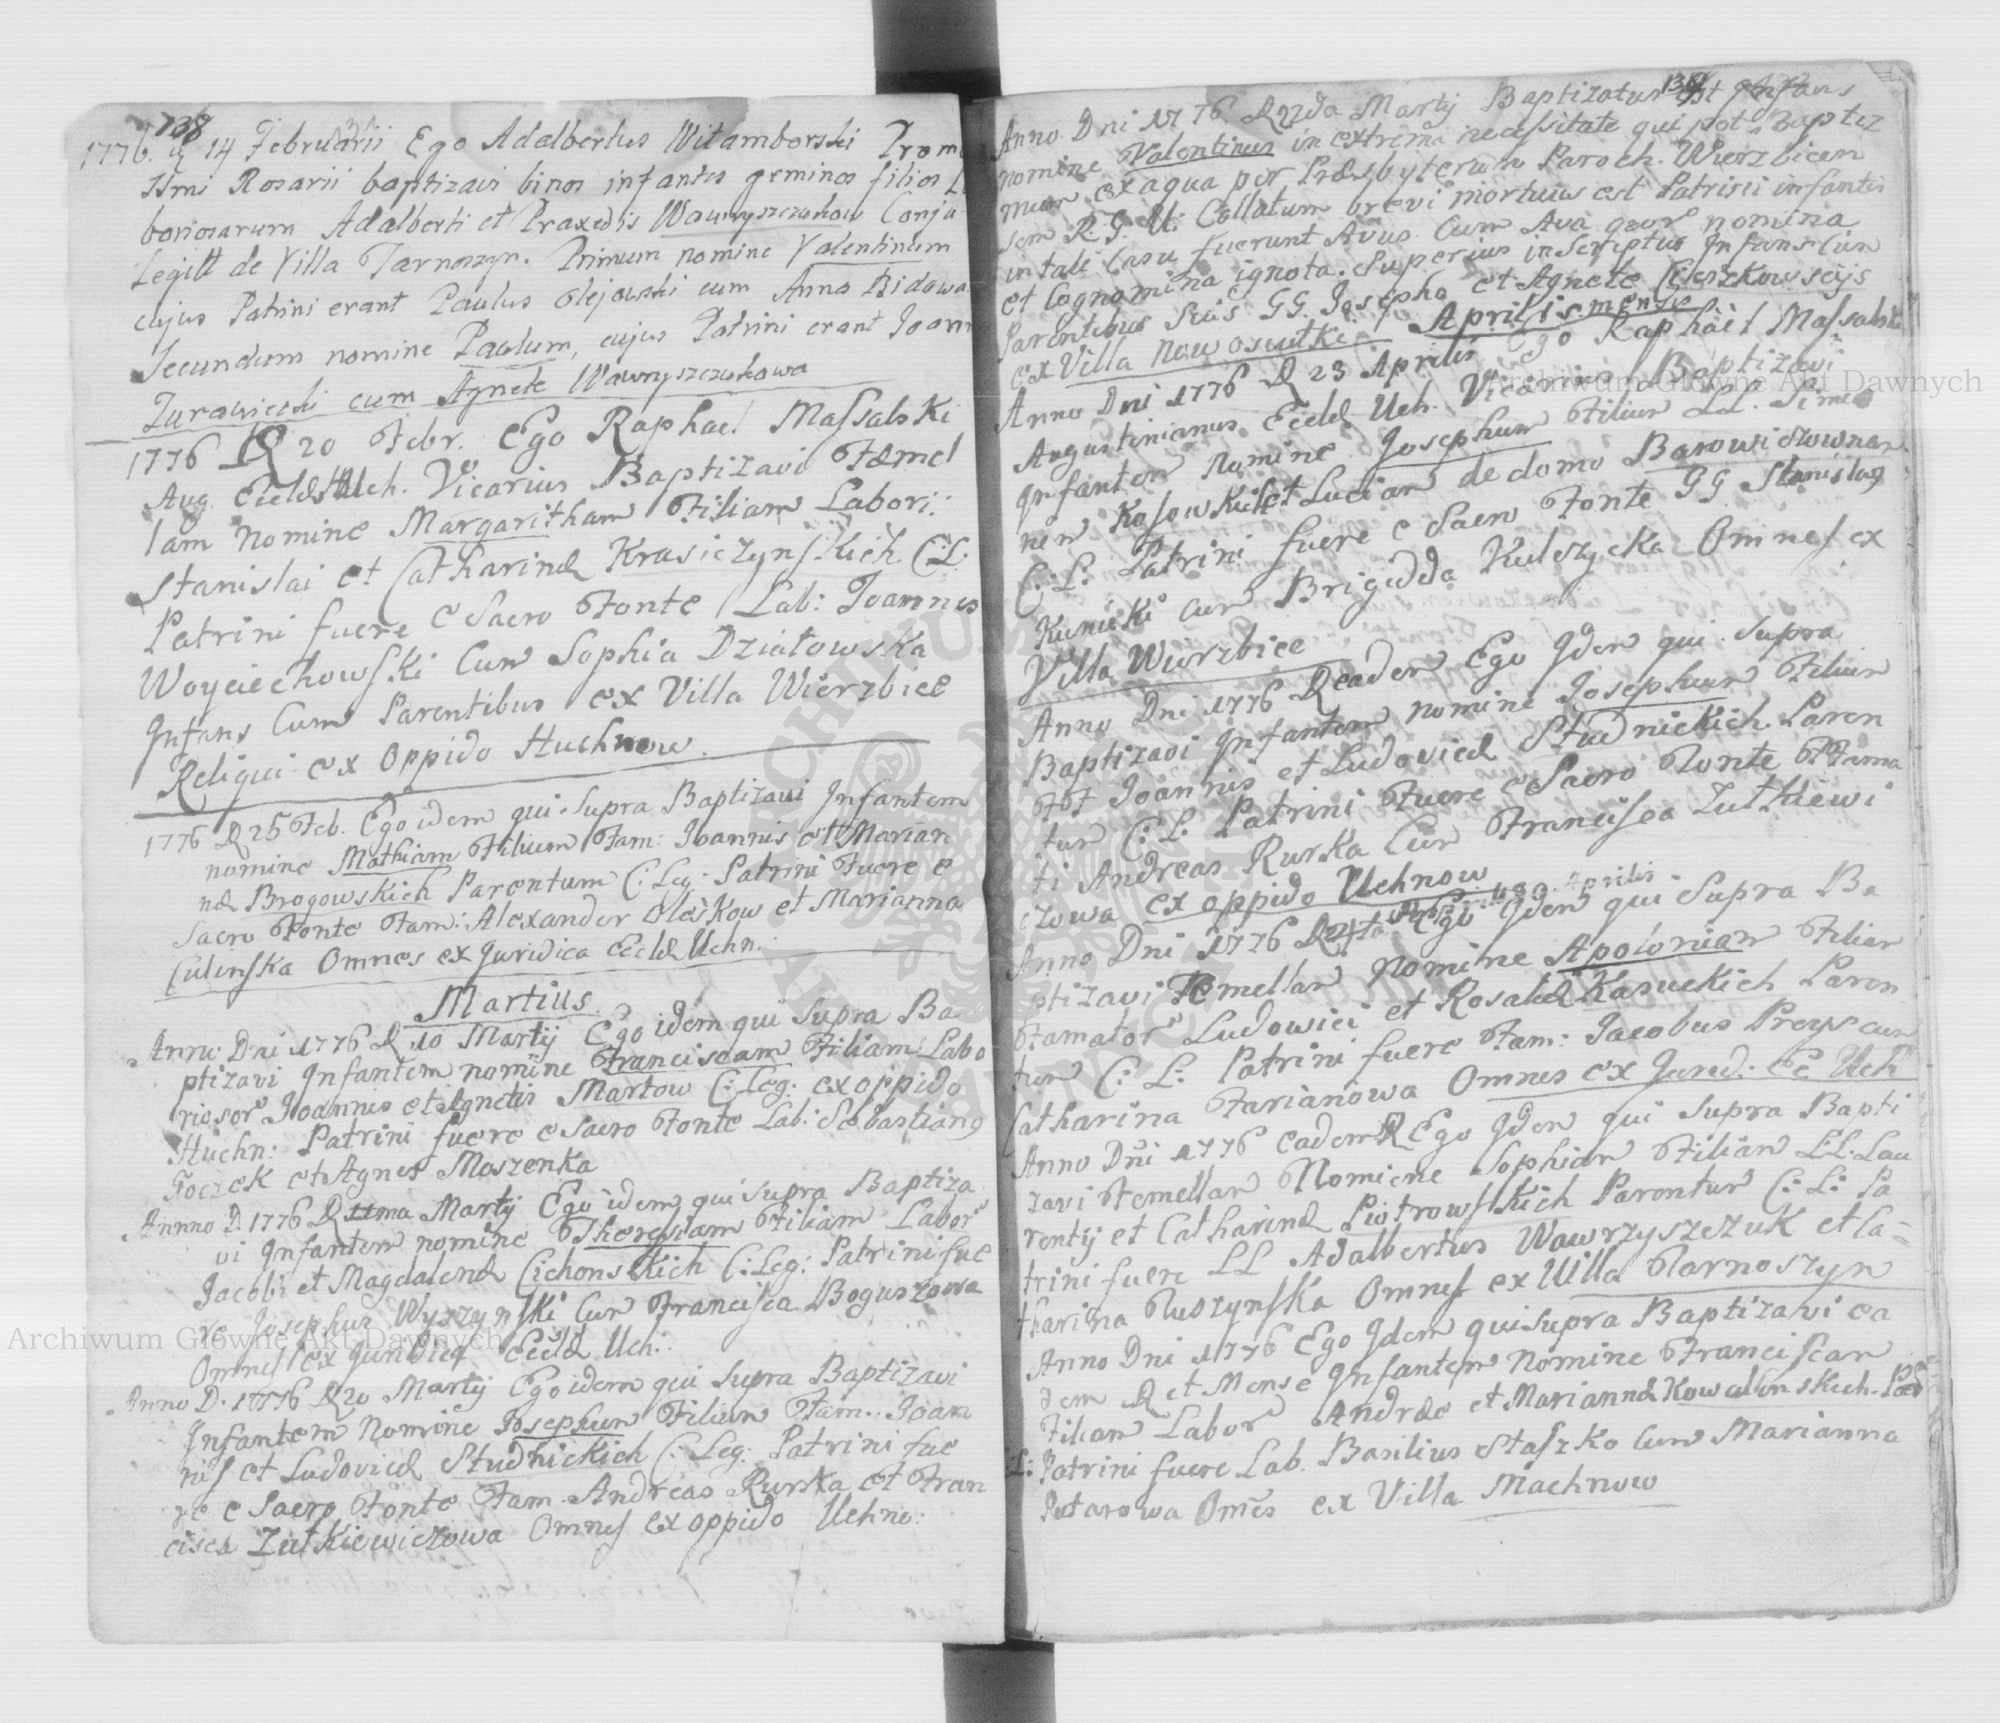 138
1776. d 14 Februarii Ego Adalbertus Witamborski Prom
SSmi Rosarii baptizavi binos infantes geminos filios La
boriosarum Adalberti et Praxedis Wawryszczukow Conju
Legitt de Villa Tarnoszyn. Primum nomine Valentinum
cujus Patrini erant Paulus Olejowski cum Anna Bidowa.
Secundum nomine Paulum, cujus Patrini erant Joann
Zurawiecki cum Agnete Wawryszczukowa
1776 D 20 Febr. Ego Raphael Massalski
Aug. Eccles Uch. Vicarius Baptizavi Fæmel
lam Nomine Margaritham Filiam Labori:
Stanislai et Catharinæ Krasiczynskich C:L:
Patrini fuere e Sacro Fonte Lab: Joannes
Woyciechowski Cum Sophia Działowska
Infans Cum Parentibus ex Villa Wierzbice
Reliqui ex Oppido Huchnow.
1776 D 25 Feb. Ego idem qui Supra Baptizavi Infantem
nomine Mathiam Filium Fam: Joannis et Marian
næ Brogowskich Parentum C: Leg: Patrini Fuere e
Sacro Fonte Fam: Alexander Oleśkow et Marianna
Culinska Omnes ex Juridica Eccłæ Uchn.
Martius
Anno Dni 1776 D 10 Martij Ego idem qui Supra Ba
ptizavi Infantem nomine Franciscam Filiam Labo
riosor Joannes et Agnetis Martow C: Leg: ex oppido
Huchn: Patrini fuere e Sacro Fonte Lab: Sebastiang
Foczek et Agnes Moszenka
Annno D. 1776 D 11ma Martij Ego idem qui Supra Baptiza
vi Infantem nomine Theresiam Filiam Labor
Jacobi et Magdalenæ Cichonskich C: Leg: Patrini fue
re Josephus Wyszynski Cum Francisca Boguszowa
Omnes ex Juridica Eccłæ Uch:
Anno D. 1776 D 20 Martij Ego idem qui Supra Baptizavi
Infantem Nomine Josephum Filium Fam: Joan
nis et Ludovicæ Studnickich C: Leg: Patrini fue
re e Sacro Fonte Fam. Andreas Rurka et Fran
cisca Zutkiewiczowa Omnes ex oppido Uchno:
Anno Dni 1776 D 22da Martij Baptizatus est Infans
nomine Valentinus in extrema necessitate qui pot Baptiz
mum ex aqua per Præsbyterum Paroch. Wierzbicen
sem R. G. U. Collatum brevi mortuus est Patrini infantis
in tali Casu fuerunt Avus Cum Ava quor nomina
et Cognomina ignota. Superius inscriptus Infans Cum
Parentibus Suis GG. Josepho et Agnete Cieszkowscijs
ex Villa Nowosiułki Aprilis mense
Anno Dni 1776 D 23 Aprilis Ego Raphael Massalski
Augustinianus Eccłæ Uch. Vicarius Baptizavi
Infantem Nomine Josephum Filium LL. Simeo
nem Kosowskich et Lucian de domo Barowiczownar
C: L: Patrini fuere e Sacro Fonte GG Stanislaus
Kunicki cum Brigidda Kulczycka Omnes ex
Villa Wierzbice
Anno Dni 1776 D eadem Ego Idem qui Supra
Baptizavi Infantem nomine Josephum Filium
FF Joannis et Ludovicæ Studnickich Paren
tum C: L: Patrini Fuere e Sacro Fonte FFama
ti Andreas Rurka Cum Francisca Zutkiewi
czowa ex oppido Uchnow
Anno Dni 1776 D 24ta Aprilis Ego Idem qui Supra Ba
ptizavi Femellam Nomine Apoloniam Filiam
Famator Ludowici et Rosaliæ Kasuckich Paren
tum C: L: Patrini fuere Fam: Jacobus Preys cum
Catharina Farianowa Omnes ex Jured: Ec Uch
Anno Dni 1776 eadem D Ego Idem qui Supra Bapti
zavi Femellam Nomiene Sophiam Filiam LL: Lau
rentij et Catharinæ Piotrowskich Parentum C: L: Pa
trini fuere LL Adalbertus Wawrzyszczuk et Ca=
tharina Tuszynska Omnes ex Willa Tarnoszyn
Anno Dni 1776 Ego Idem qui Supra Baptizavi ea
dem D et Mense Infantem Nomine Franciscam
Filiam Labor Andræe et Mariannæ Kowalinskich Par
C:L: Patrini fuere Lab. Basilius Staszko Cum Marianna
Putarowa Omēs ex Villa Machnow
Archiwum Główne Akt Dawnych
Archiwum Główne Akt Dawnych